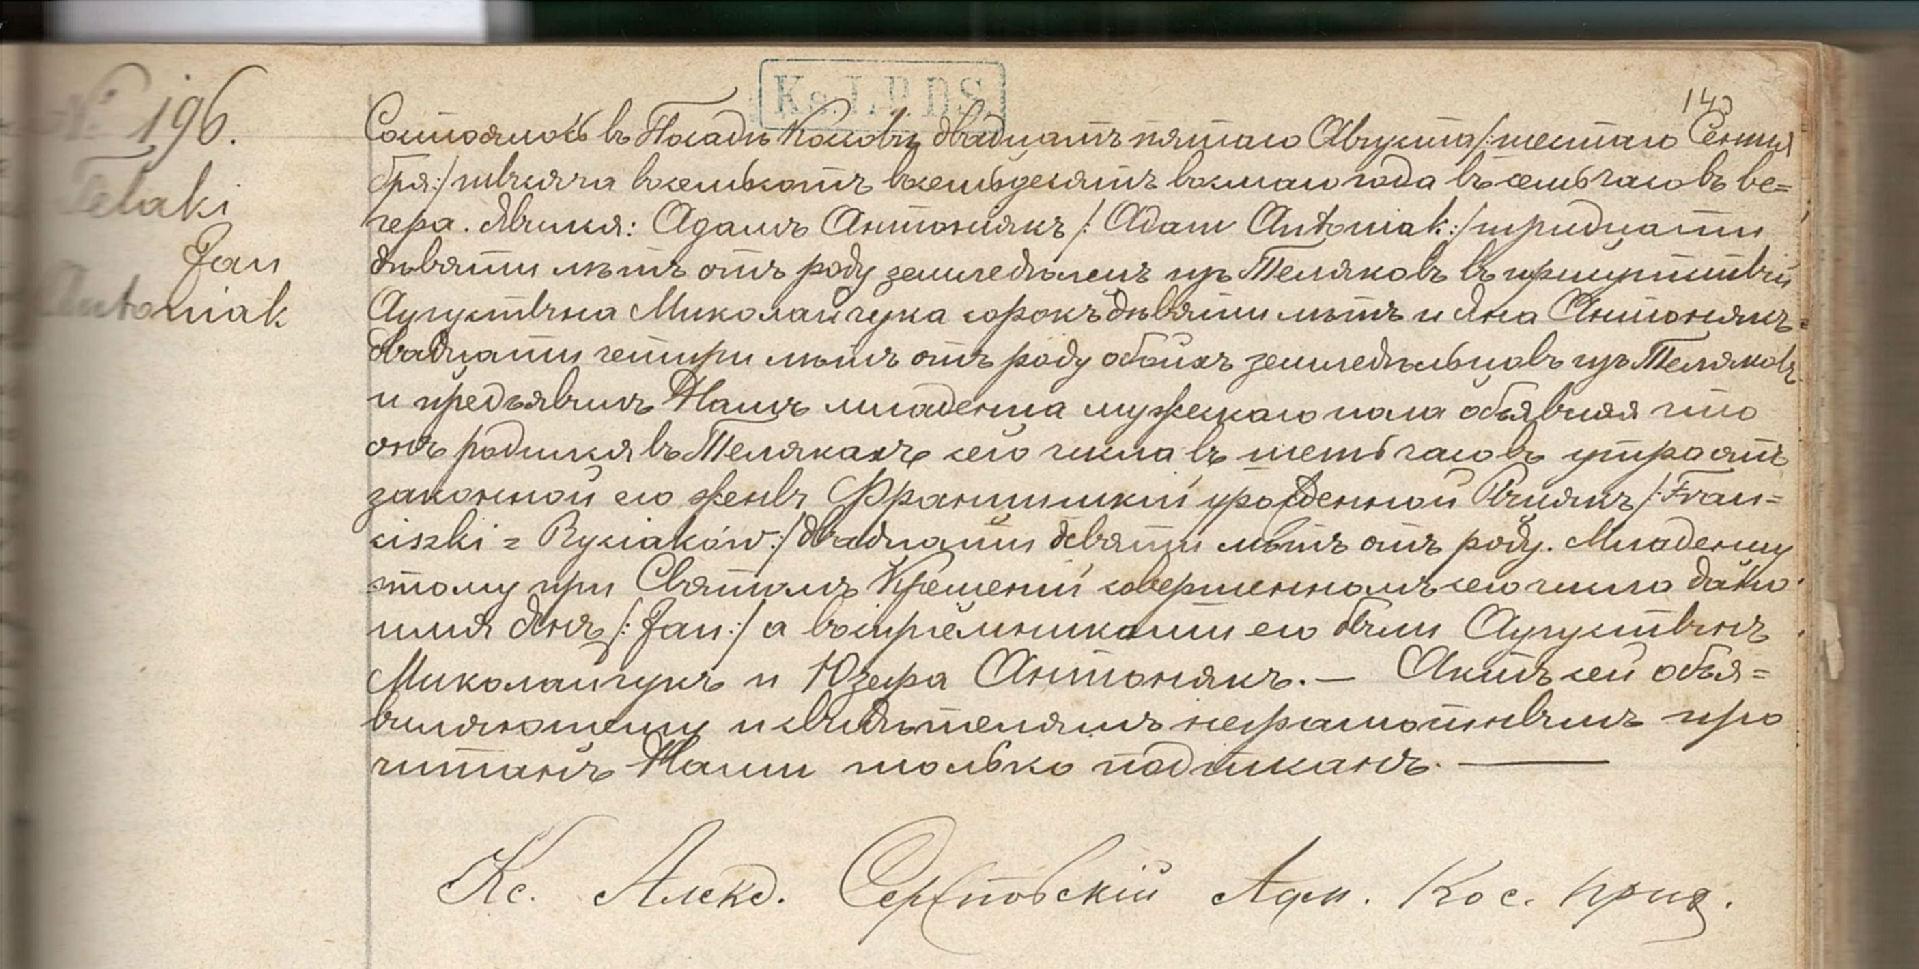 K.s.I.P.D.S.
143
№ 196.
Telaki
Jan
Antoniak
Состоялось въ Посадѣ Косовѣ двадцать пятаго Августа /: шестаго Сентя
бря:/ тысяча восемьсотъ восемьдесятъ восьмаго года въ семь часовъ ве=
чера. Явился: Адамъ Антонякъ /: Adam Antoniak:/ тридцати
девяти лѣтъ отъ роду земледѣлецъ изъ Теляковъ въ присутствіи
Аугустына Миколайчука сорокъ девяти лѣтъ и Яна Антонякъ
двадцати четыри лѣтъ отъ роду обоихъ земледѣльцовъ изъ Теляковъ
и предъявилъ Намъ младенца мужескаго пола объявляя что
онъ родился въ Телякахъ сего числа въ шесть часовъ утра отъ
законной его жены Францишки урожденной Рысякъ /: Fran=
ciszki z Rysiaków:/ двадцати девяти лѣтъ отъ роду. Младенцу
этому при Святомъ Крещеніи совершенномъ сего числа дано
имя Янъ /: Jan:/ а воспріемниками его были Аугустынъ
Миколайчукъ и Юзефа Антонякъ. — Актъ сей объя=
вляющему и свидѣтелямъ неграмотнымъ про
читанъ Нами только подписанъ. —
Кс. Алекд. Адм. Кос. прих.